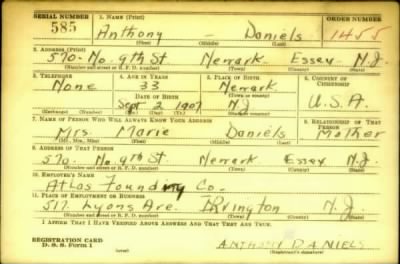 SERIAL NUMBER 1. NAME (Print) ORDER NUMBER
585 Anthony — Daniels 1455
(First) (Middle) (Last)
2. ADDRESS (Print)
570- No. 9th St. Newark Essex N.J.
(Number and street or R. F. D. number) (Town) (County) (State)
3. TELEPHONE 4. AGE IN YEARS 5. PLACE OF BIRTH 6. COUNTRY OF CITIZENSHIP
None 33 Newark
DATE OF BIRTH (Town or county)
Sept 2 1907 N.J. U.S.A.
(Exchange) (Number) (Mo.) (Day) (Yr.) (State or country)
7. NAME OF PERSON WHO WILL ALWAYS KNOW YOUR ADDRESS 8. RELATIONSHIP OF THAT PERSON
Mrs. Marie Daniels Mother
(Mr., Mrs., Miss) (First) (Middle) (Last)
9. ADDRESS OF THAT PERSON
570- No. 9th St. Newark Essex N.J.
(Number and street or R. F. D. number) (Town) (County) (State)
10. EMPLOYER'S NAME
Atlas Foundry Co.
11. PLACE OF EMPLOYMENT OR BUSINESS
517. Lyons Ave. IRvington N.J.
(Number and street or R. F. D. number) (Town) (County) (State)
I AFFIRM THAT I HAVE VERIFIED ABOVE ANSWERS AND THAT THEY ARE TRUE.
REGISTRATION CARD
D. S. S. Form 1 (over) ANTHONY DANIELS
(Registrant's signature)